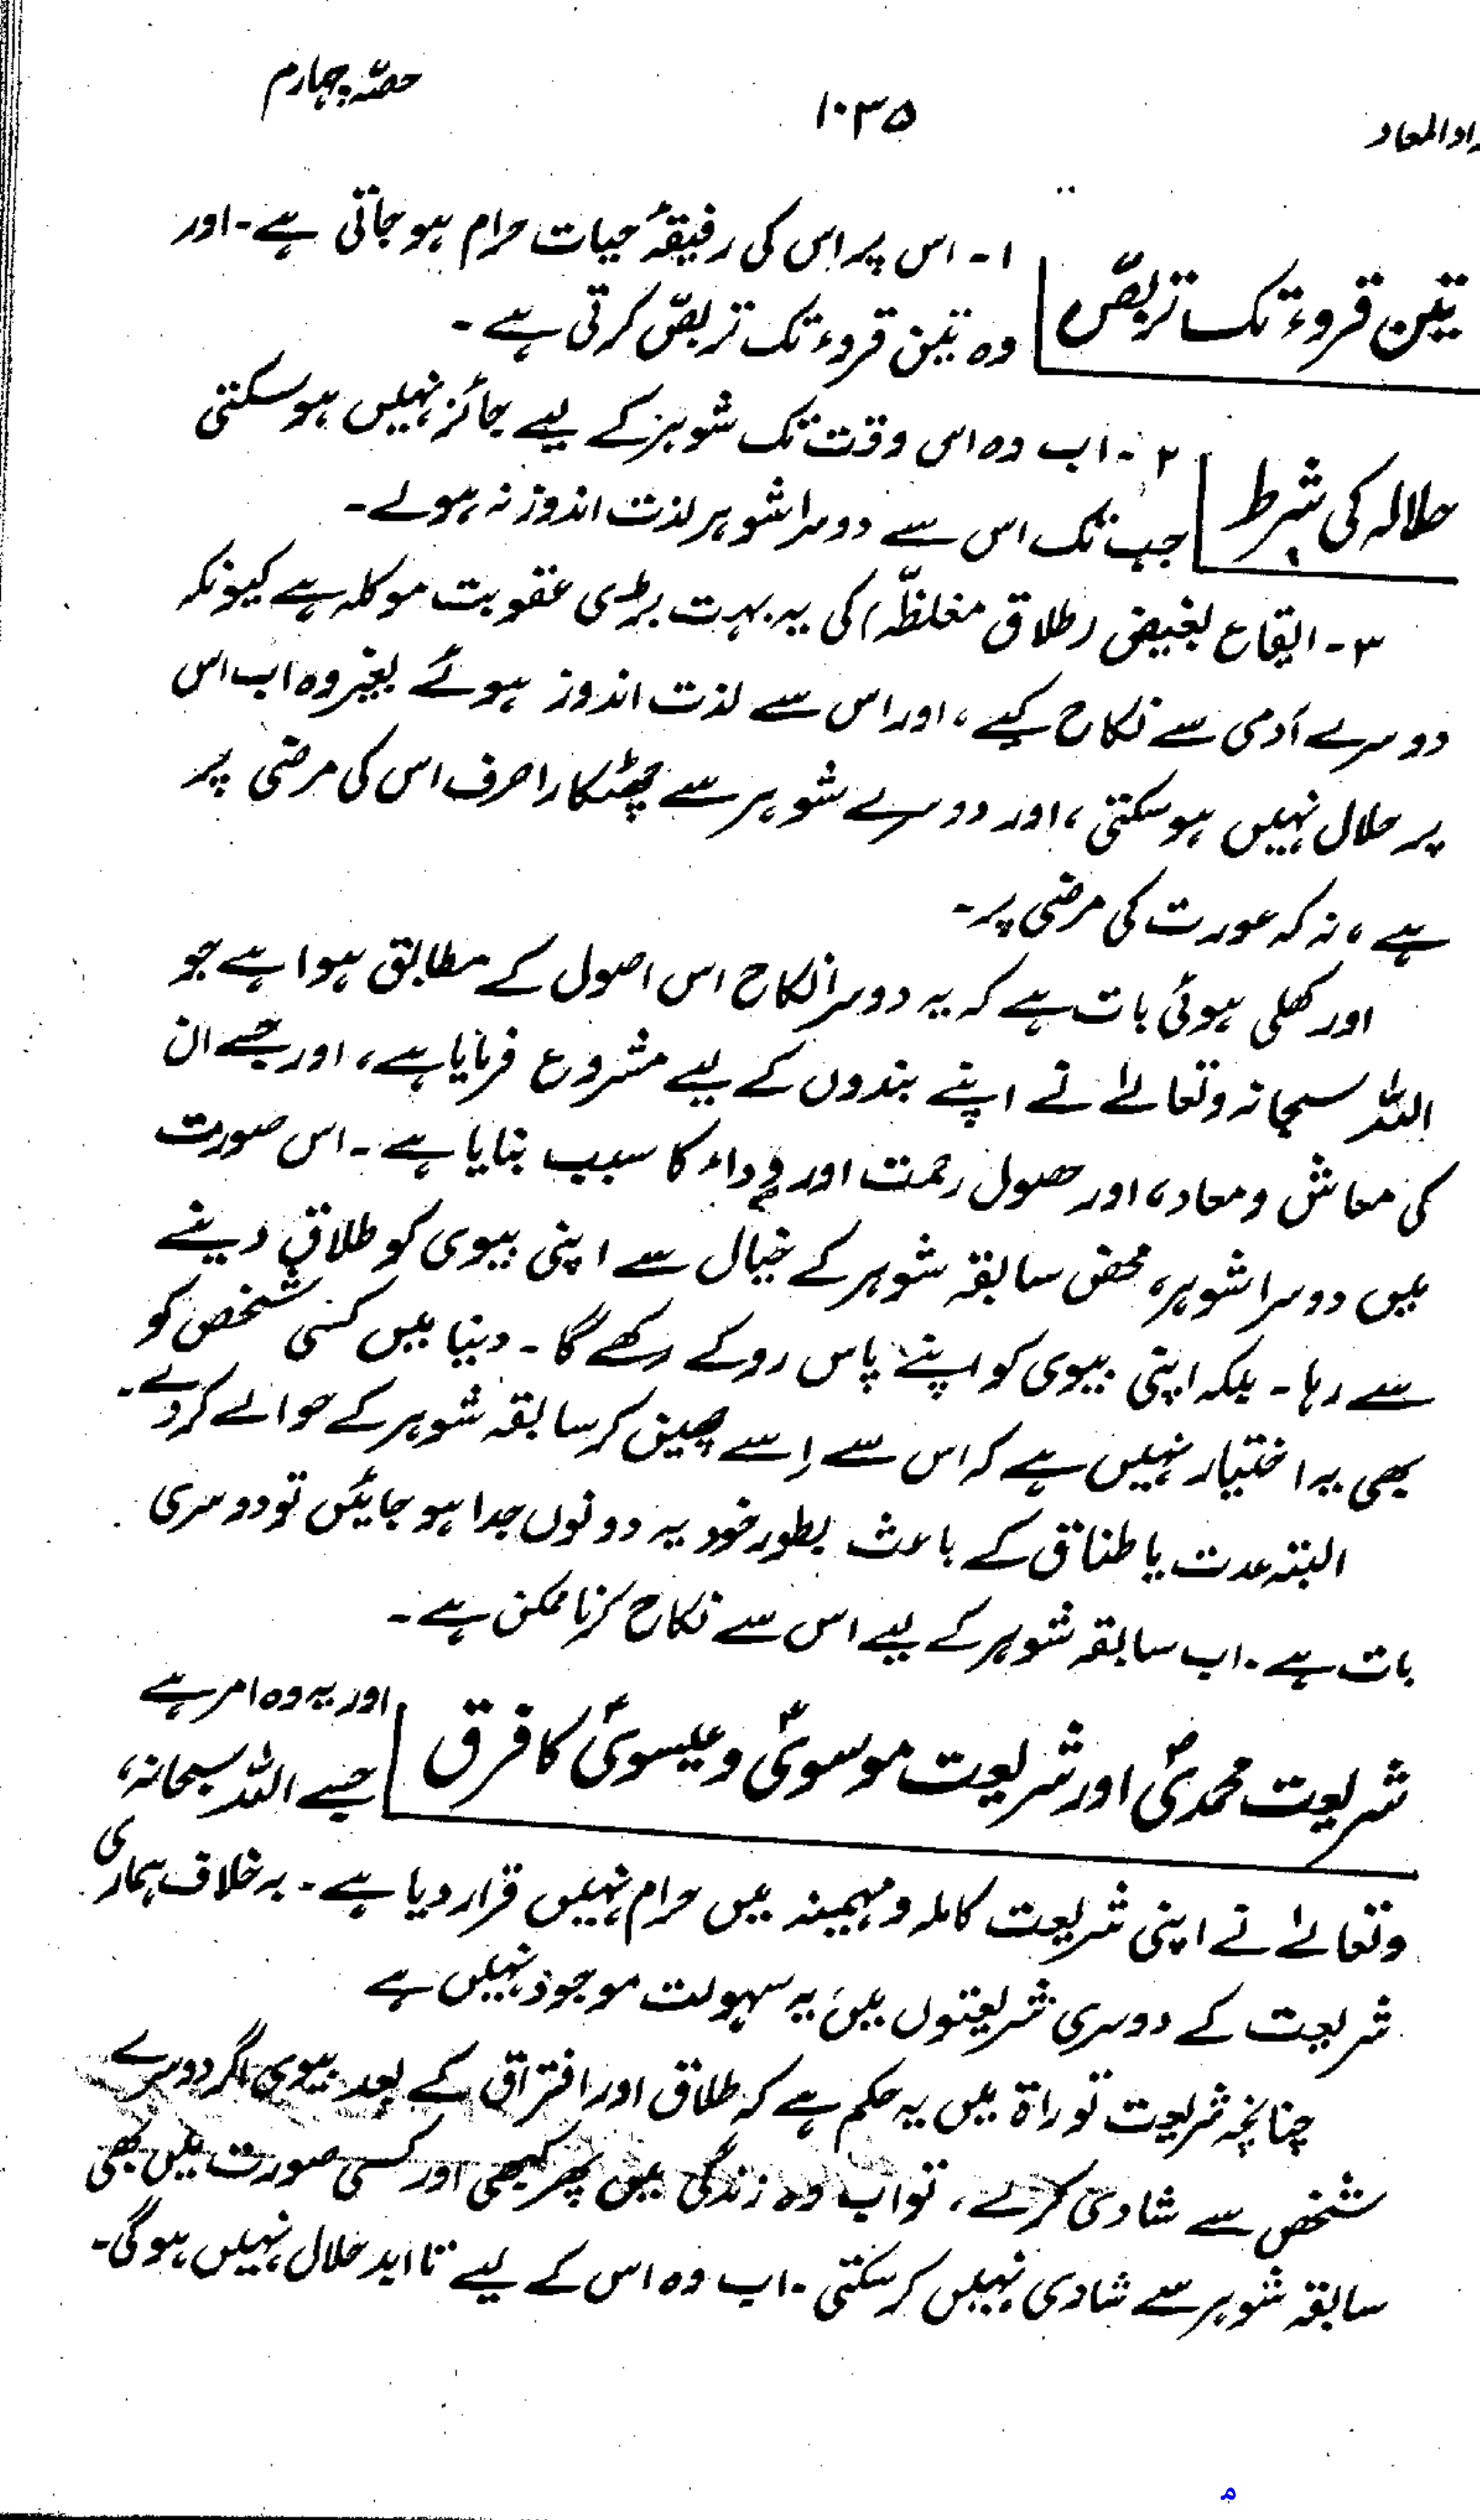 زادالمعاد ۱۰۳۵ حصّہ چہارم
تین قروء تک تربصّ
۱۔ اس پر اس کی رفیقۂ حیات حرام ہو جاتی ہے۔ اور
وہ تین قروء تک تربصّ کرتی ہے۔
حلالہ کی شرط
۲۔ اب وہ اس وقت تک شوہر کے لیے جائز نہیں ہو سکتی
جب تک اس سے دوسرا شوہر لذت اندوز نہ ہولے۔
۳۔ ایقاع بغیض (طلاق مغلظّہ) کی یہ بہت بڑی عقوبت موکلہ ہے کیونکہ
دوسرے آدمی سے نکاح کیے، اور اس سے لذت اندوز ہوئے بغیر وہ اب اس
پر حلال نہیں ہو سکتی، اور دوسرے شوہر سے چھٹکارا صرف اس کی مرضی پر
ہے، نہ کہ عورت کی مرضی پر۔
اور کھلی ہوئی بات ہے کہ یہ دوسرا نکاح اس اصول کے مطابق ہوا ہے جو
اللہ سبحانہ وتعالےٰ نے اپنے بندوں کے لیے مشروع فرمایا ہے، اور جسے ان
کی معاش و معاد، اور حصول رحمت اور وداد کا سبب بنایا ہے۔ اس صورت
میں دوسرا شوہر، محض سابقہ شوہر کے خیال سے اپنی بیوی کو طلاق دینے
سے رہا۔ بلکہ اپنی بیوی کو اپنے پاس روکے رکھے گا۔ دنیا میں کسی شخص کو
بھی یہ اختیار نہیں ہے کہ اس سے اِسے چھین کر سابقہ شوہر کے حوالے کر دے۔
البتہ عدت یا طلاق کے باعث بطور خود یہ دونوں جدا ہو جائیں تو دوسری
بات ہے۔ اب سابقہ شوہر کے لیے اس سے نکاح کرنا ممکن ہے۔
شریعت محمدیؐ اور شریعت موسویؑ و عیسویؑ کا فرق
اور یہ وہ امر ہے
جسے اللہ سبحانہ،
وتعالےٰ نے اپنی شریعت کاملہ ومہیمنہ میں حرام نہیں قرار دیا ہے۔ بہ خلاف ہماری
شریعت کے دوسری شریعتوں میں یہ سہولت موجود نہیں ہے
چنانچہ شریعت توراۃ میں یہ حکم ہے کہ طلاق اور افتراق کے بعد بیوی اگر دوسرے
شخص سے شادی کرلے، تو اب وہ زندگی میں پھر کبھی اور کسی صورت میں بھی
سابقہ شوہر سے شادی نہیں کر سکتی۔ اب وہ اس کے لیے تا ابد حلال نہیں ہوگی۔